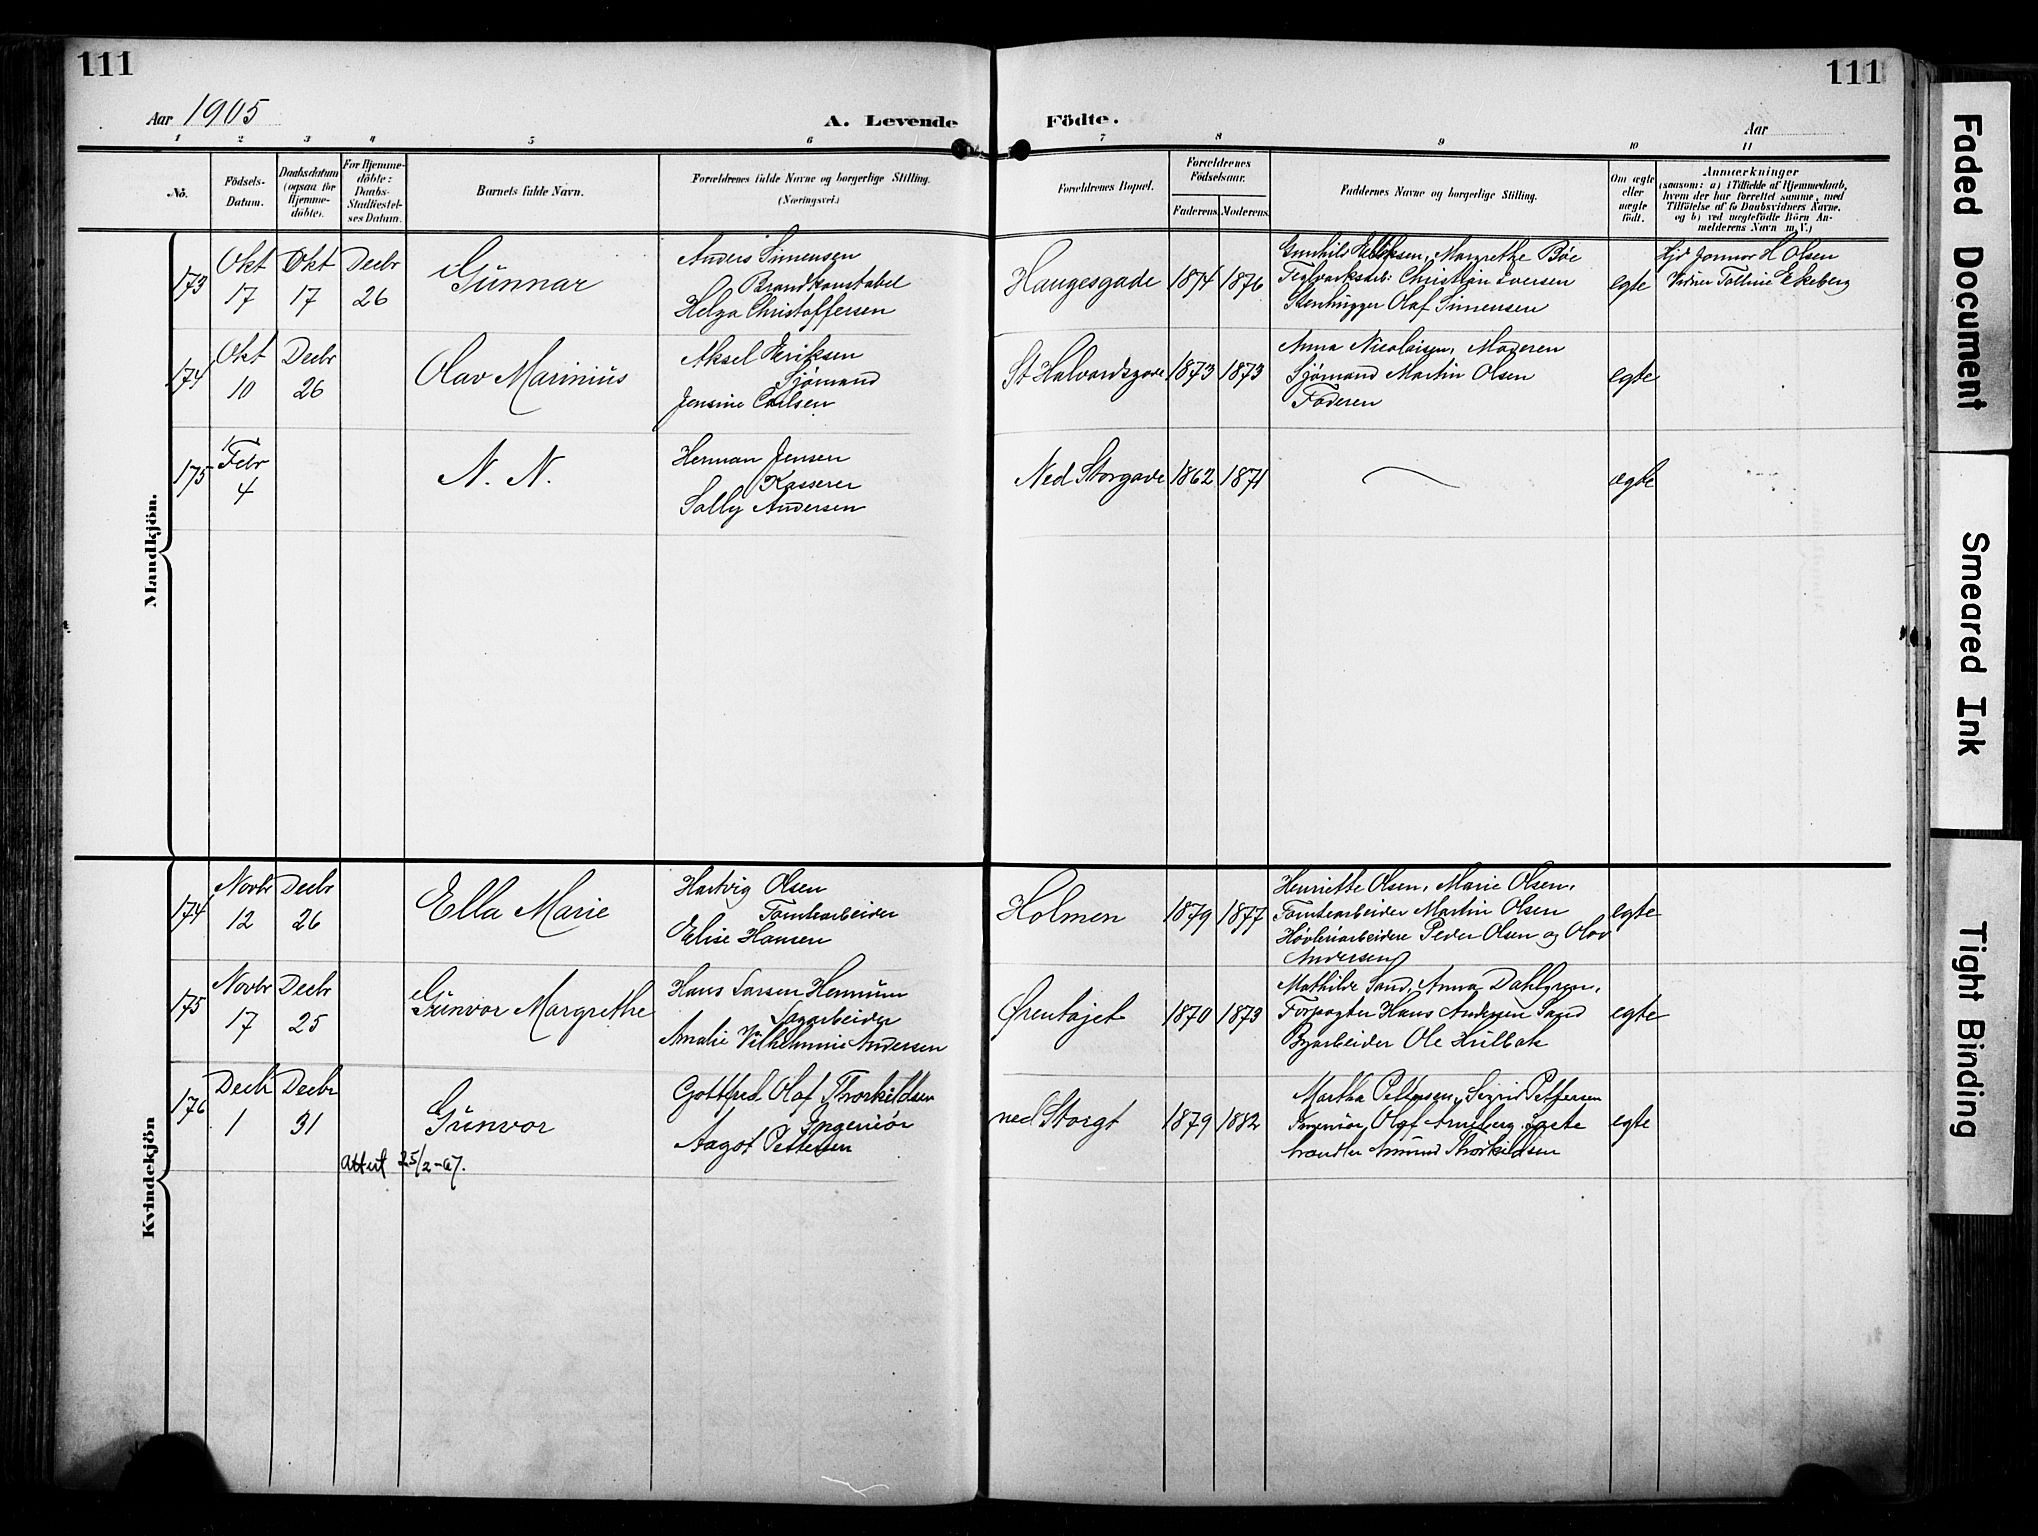 111
111
Aar 1905
A. Levende
Födte.
Aar
1 2 3 4 5 6 7 8 9 10 11
No.
Födsels-
Datum.
Daabsdatum
(ogsaa for
Hjemme-
döbte).
For Hjemme-
döbte:
Daabs-
Stadfæstel-
ses Datum.
Barnets fulde Navn.
Forældrenes fulde Navne og borgerlige Stilling.
(Næringsvei.)
Forældrenes Bopæl.
Forældrenes
Födselsaar.
Faderens.
Moderens.
Faddernes Navne og borgerlige Stilling.
Om ægte
eller
uægte
födt.
Anmærkninger
(saasom: a) i Tilfælde af Hjemmedaab,
hvem der har forrettet samme, med
Tilföielse af to Daabsvidners Navne.
og b) ved uægtefödte Börn An-
melderens Navn m. V.)
Mandkjön.
173
Okt
17
Okt
17
Decbr
26
Gunnar
Anders Simensen
Brandkonstabel
Helga Christoffersen
Haugesgade
1874
1876
Gunhild Eriksen, Margrethe Bøe
Teglverksarb: Christian Iversen
Stenhugger Olaf Simensen
egte
Hjd Jormor H Olsen
Vidner Tolline Ekeberg
174
Okt
10
Decbr
26
Olav Marinius
Aksel Eriksen
Sjømand
Jensine Carlsen
St Halvardsgade
1873
1873
Anna Nicolaisen, Moderen
Sjømand Martin Olsen
Faderen
egte
175
Febr
4
N. N.
Herman Jensen
Kasserer
Sally Andersen
Ned Storgade
1862
1871
ægte
Kvindekjön
174
Novbr
12
Decbr
26
Ella Marie
Hartvig Olsen
Tomtearbeider
Elise Hansen
Holmen
1879
1877
Henriette Olsen, Marie Olsen,
Tomtearbeider Martin Olsen
Høvleriarbeidere Peder Olsen og Olav
Andersen
egte
175
Novbr
17
Decbr
25
Gunvor Margrethe
Hans Larsen Hennum
Sagarbeider
Amalie Vilhelmine Andersen
Ørentøjet
1870
1873
Mathilde Sand, Anna Dahlgren,
Forpagter Hans Andersen Sand
Byarbeider Ole Hulbak
egte
176
Decbr
1
Decbr
31
Gunvor
Gottfred Olaf Thorkildsen
Ingeniør
Aagot Pettersen
ned Storgt
1879
1882
Martha Pettersen, Sigrid Pettersen
Ingeniør Olaf Arneberg
handler Amund Thorkildsen
egte
Attest 25/2-67.
Faded Document
Smeared Ink
Tight Binding